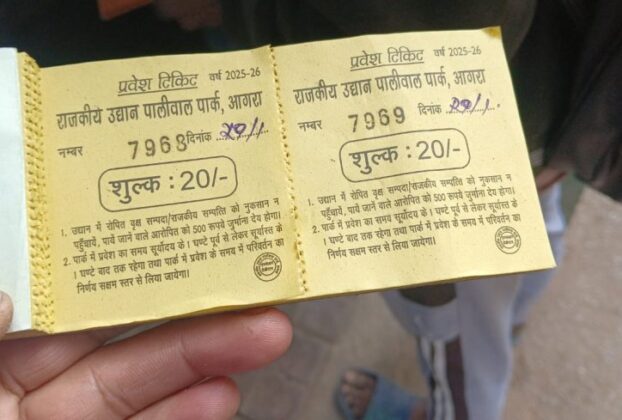 प्रवेश टिकिट वर्ष 2025-26
राजकीय उद्यान पालीवाल पार्क, आगरा
नम्बर 7968 दिनांक 29/1
शुल्क : 20/-
1. उद्यान में रोपित वृक्ष सम्पदा/राजकीय सम्पत्ति को नुकसान न
पहुँचायें, पाये जाने वाले आरोपित को 500 रूपये जुर्माना देय होगा।
2. पार्क में प्रवेश का समय सूर्योदय के 1 घण्टे पूर्व से लेकर सूर्यास्त के
1 घण्टे बाद तक रहेगा तथा पार्क में प्रवेश के समय में परिवर्तन का
निर्णय सक्षम स्तर से लिया जायेगा।
प्रवेश टिकिट वर्ष 2025-26
राजकीय उद्यान पालीवाल पार्क, आगरा
नम्बर 7969 दिनांक 29/1
शुल्क : 20/-
1. उद्यान में रोपित वृक्ष सम्पदा/राजकीय सम्पत्ति को नुकसान न
पहुँचायें, पाये जाने वाले आरोपित को 500 रूपये जुर्माना देय होगा।
2. पार्क में प्रवेश का समय सूर्योदय के 1 घण्टे पूर्व से लेकर सूर्यास्त के
1 घण्टे बाद तक रहेगा तथा पार्क में प्रवेश के समय में परिवर्तन का
निर्णय सक्षम स्तर से लिया जायेगा।